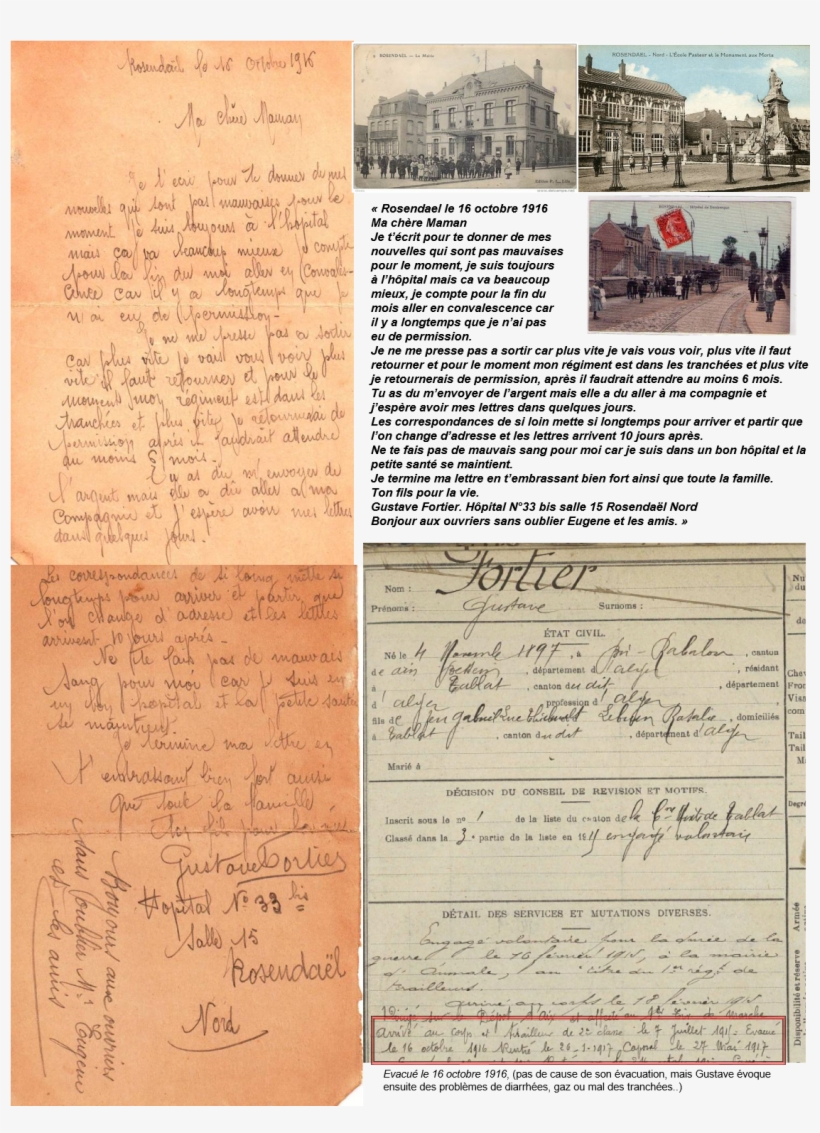 Rosendaël le 16 Octobre 1916
Ma chère Maman
Je t'ecri pour te donner de mes
nouvelles qui sont pas mauvaises pour le
moment je suis toujours à l'hôpital
mais ca va beaucoup mieux je compte
pour la fin du moi aller en Convales-
cence car il y a longtemps que je
n'ai eu de permission-
Je ne me presse pas a sortir
car plus vite je vais vous voir plus
vite il faut retourner et pour le
moment mon régiment est dans les
tranchées et plus vite je retournerai de
permission après il faudrait attendre
au moins 6 mois.
Tu as du m'envoyer de
l'argent mais elle a du aller a ma
Compagnie et j'espère avoir mes lettres
dans quelques jours.
Les correspondances de si loing mette si
longtemps pour arriver et partir que
l'on change d'adresse et les lettres
arrivent 10 jours après-
Ne te fais pas de mauvais
sang pour moi car je suis en
un bon hopital et la petite santé
se maintient.
Je termine ma lettre en
t'embrassant bien fort ainsi
que tout la famille
Ton fils pour la vie
Gustave Fortier
Hopital N° 33 bis
Salle 15
Rosendaël
Nord
Bonjours aux ouvriers
sans oublier Mr Eugène
et les amis
ROSENDAEL — La Mairie
ROSENDAEL - Nord - L'École Pasteur et le Monument aux Morts
« Rosendael le 16 octobre 1916
Ma chère Maman
Je t'écrit pour te donner de mes
nouvelles qui sont pas mauvaises
pour le moment, je suis toujours
à l'hôpital mais ca va beaucoup
mieux, je compte pour la fin du
mois aller en convalescence car
il y a longtemps que je n'ai pas
eu de permission.
Je ne me presse pas a sortir car plus vite je vais vous voir, plus vite il faut
retourner et pour le moment mon régiment est dans les tranchées et plus vite
je retournerais de permission, après il faudrait attendre au moins 6 mois.
Tu as du m'envoyer de l'argent mais elle a du aller à ma compagnie et
j'espère avoir mes lettres dans quelques jours.
Les correspondances de si loin mette si longtemps pour arriver et partir que
l'on change d'adresse et les lettres arrivent 10 jours après.
Ne te fais pas de mauvais sang pour moi car je suis dans un bon hôpital et la
petite santé se maintient.
Je termine ma lettre en t'embrassant bien fort ainsi que toute la famille.
Ton fils pour la vie.
Gustave Fortier. Hôpital N°33 bis salle 15 Rosendaël Nord
Bonjour aux ouvriers sans oublier Eugene et les amis. »
Nom : Fortier
Prénoms : Gustave Surnoms :
ÉTAT CIVIL.
Né le 4 Novembre 1897, à , canton
de , département d'Alger, résidant
à Tablat, canton du dit, département
d'alger, profession d
fils de , domiciliés
à Tablat, canton du dit, département d'Alger
Marié à
DÉCISION DU CONSEIL DE REVISION ET MOTIFS.
Inscrit sous le n° 1 de la liste du canton de la Cne Mixte de Tablat
Classé dans la 3e partie de la liste en engagé volontaire
DÉTAIL DES SERVICES ET MUTATIONS DIVERSES.
Engagé volontaire pour la durée de la
guerre le 16 février 1915, à la mairie
d'Aumale, au titre du 1er régt de
tirailleurs.
Arrivé au corps le 18 février 1915
Arrivé au Corps et tirailleur de 2e classe le 7 juillet 1915. Evacué
le 16 octobre 1916 Rentré le 26-1-1917 Caporal le 27 Mai 1917
Disponibilité et réserve
Armée
Evacué le 16 octobre 1916, (pas de cause de son évacuation, mais Gustave évoque
ensuite des problèmes de diarrhées, gaz ou mal des tranchées..)